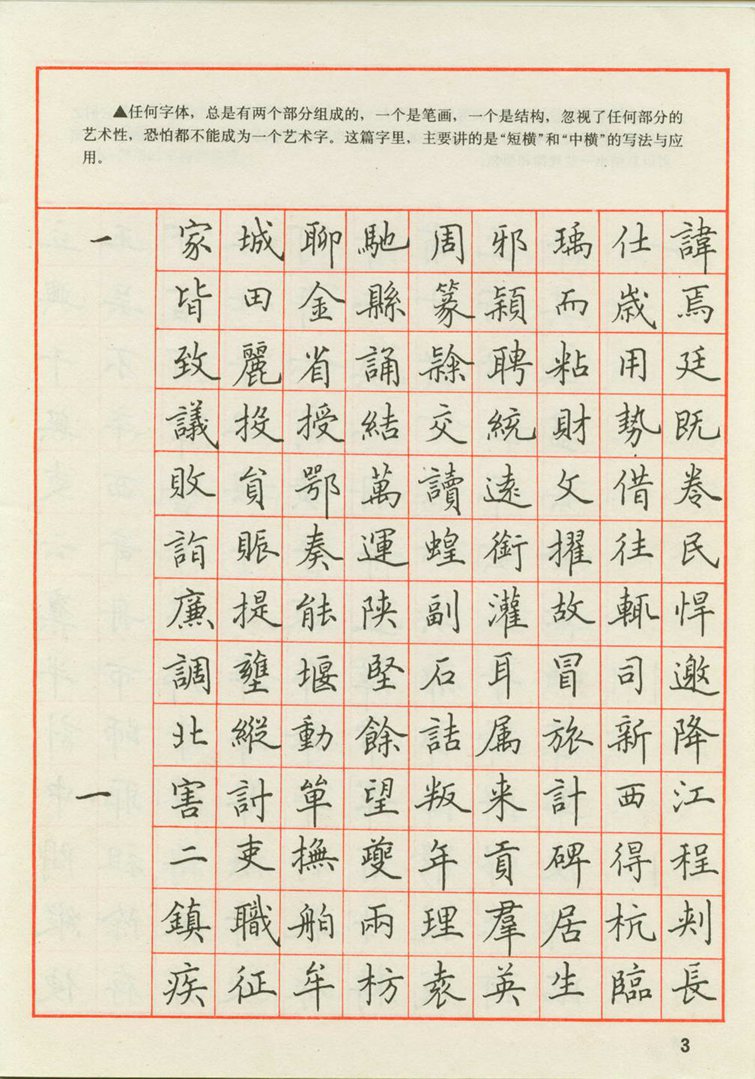 ▲任何字体，总是有两个部分组成的，一个是笔画，一个是结构，忽视了任何部分的
艺术性，恐怕都不能成为一个艺术字。这篇字里，主要讲的是“短横”和“中横”的写法与应
用。
一 家 城 聊 馳 周 邪 瑀 仕 諱
皆 田 金 縣 篆 穎 而 歲 焉
致 麗 省 誦 聘 粘 用 廷
議 投 授 結 交 統 財 勢 既
敗 貟 鄂 萬 讀 遠 文 借 卷
詣 賑 奏 運 蝗 銜 擢 往 民
廉 提 能 陕 副 灌 故 輒 悍
調 壅 堰 堅 石 耳 冒 司 邀
北 縱 動 餘 詰 属 旅 新 降
一 害 討 單 望 叛 来 計 西 江
二 吏 撫 夔 年 貢 碑 得 程
鎮 職 舶 兩 理 羣 居 杭
疾 征 牟 枋 袁 英 生 臨 長
3